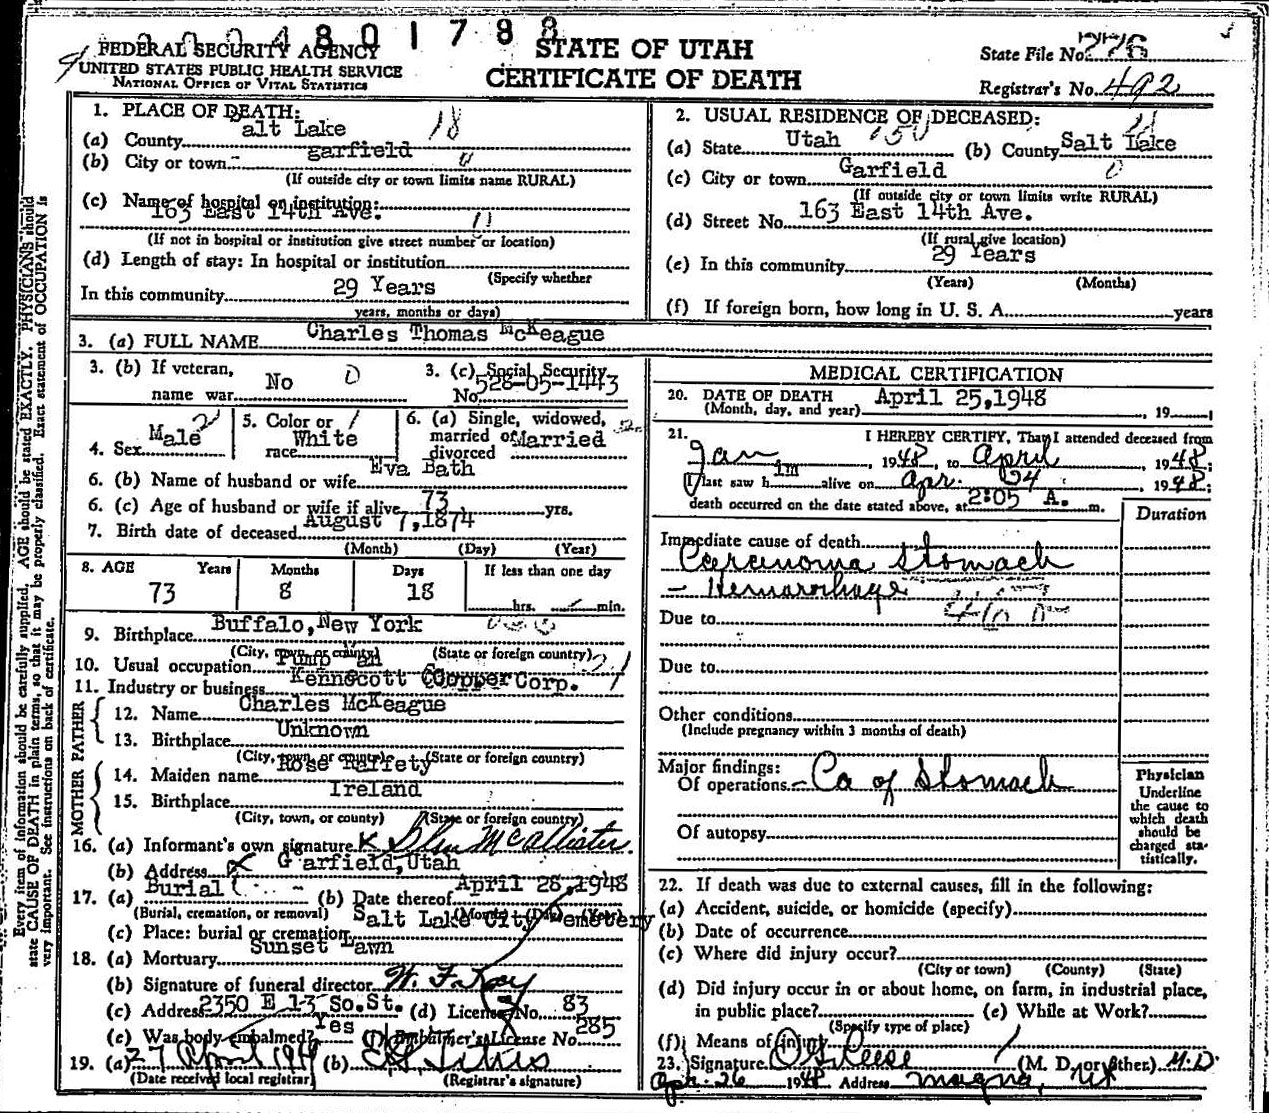 4801788
FEDERAL SECURITY AGENCY
UNITED STATES PUBLIC HEALTH SERVICE
NATIONAL OFFICE OF VITAL STATISTICS
STATE OF UTAH
CERTIFICATE OF DEATH
State File No. 776
Registrar's No. 492
Every item of information should be carefully supplied. AGE should be stated EXACTLY. PHYSICIANS should
state CAUSE OF DEATH in plain terms, so that it may be properly classified. Exact statement of OCCUPATION is
very important. See instructions on back of certificate.
1. PLACE OF DEATH:
(a) County alt Lake 18
(b) City or town garfield 0
(If outside city or town limits name RURAL)
(c) Name of hospital or institution:
163 East 14th Ave.
(If not in hospital or institution give street number or location)
(d) Length of stay: In hospital or institution
(Specify whether
In this community 29 Years
years, months or days)
2. USUAL RESIDENCE OF DECEASED:
(a) State Utah (b) County Salt Lake
(c) City or town Garfield 0
(If outside city or town limits write RURAL)
(d) Street No. 163 East 14th Ave.
(If rural give location)
(e) In this community 29 Years
(Years) (Months)
(f) If foreign born, how long in U. S. A. years
3. (a) FULL NAME Charles Thomas McKeague
3. (b) If veteran, name war No 0
3. (c) Social Security No. 528-05-1443
4. Sex Male 2
5. Color or race White
6. (a) Single, widowed, married or divorced Married
6. (b) Name of husband or wife Eva Bath
6. (c) Age of husband or wife if alive 73 yrs.
7. Birth date of deceased August 7, 1874
(Month) (Day) (Year)
8. AGE Years Months Days If less than one day
73 8 18 hrs. min.
9. Birthplace Buffalo, New York
(City, town, or county) (State or foreign country)
10. Usual occupation Pump an
11. Industry or business Kennscott Copper Corp.
FATHER
12. Name Charles McKeague
13. Birthplace Unknown
(City, town, or county) (State or foreign country)
MOTHER
14. Maiden name Rose Raffety
15. Birthplace Ireland
(City, town, or county) (State or foreign country)
16. (a) Informant's own signature McAllister
(b) Address Garfield, Utah
17. (a) Burial (b) Date thereof April 28, 1948
(Burial, cremation, or removal) (Month) (Day) (Year)
(c) Place: burial or cremation Salt Lake City Cemetery
18. (a) Mortuary Sunset Lawn
(b) Signature of funeral director W. F.
(c) Address 2350 E 13 So. St. (d) License No. 83
(e) Was body embalmed? Yes (f) Embalmer's License No. 285
19. (a) 27 April 1948 (b)
(Date received local registrar) (Registrar's signature)
MEDICAL CERTIFICATION
20. DATE OF DEATH April 25, 1948
(Month, day, and year) , 19
21. I HEREBY CERTIFY, That I attended deceased from
Jan , 1948, to April , 1948;
I last saw h im alive on Apr. 24 , 1948;
death occurred on the date stated above, at 2:05 A. m.
Duration
Immediate cause of death
Carcinoma Stomach
- Hemorrhage
Due to
Due to
Other conditions
(Include pregnancy within 3 months of death)
Major findings:
Of operations Ca of Stomach
Of autopsy
Physician
Underline
the cause to
which death
should be
charged sta-
tistically.
22. If death was due to external causes, fill in the following:
(a) Accident, suicide, or homicide (specify)
(b) Date of occurrence
(c) Where did injury occur?
(City or town) (County) (State)
(d) Did injury occur in or about home, on farm, in industrial place,
in public place? (e) While at Work?
(Specify type of place)
(f) Means of injury
23. Signature (M. D. or other) M.D
Apr. 26 1948 Address Magna, Ut